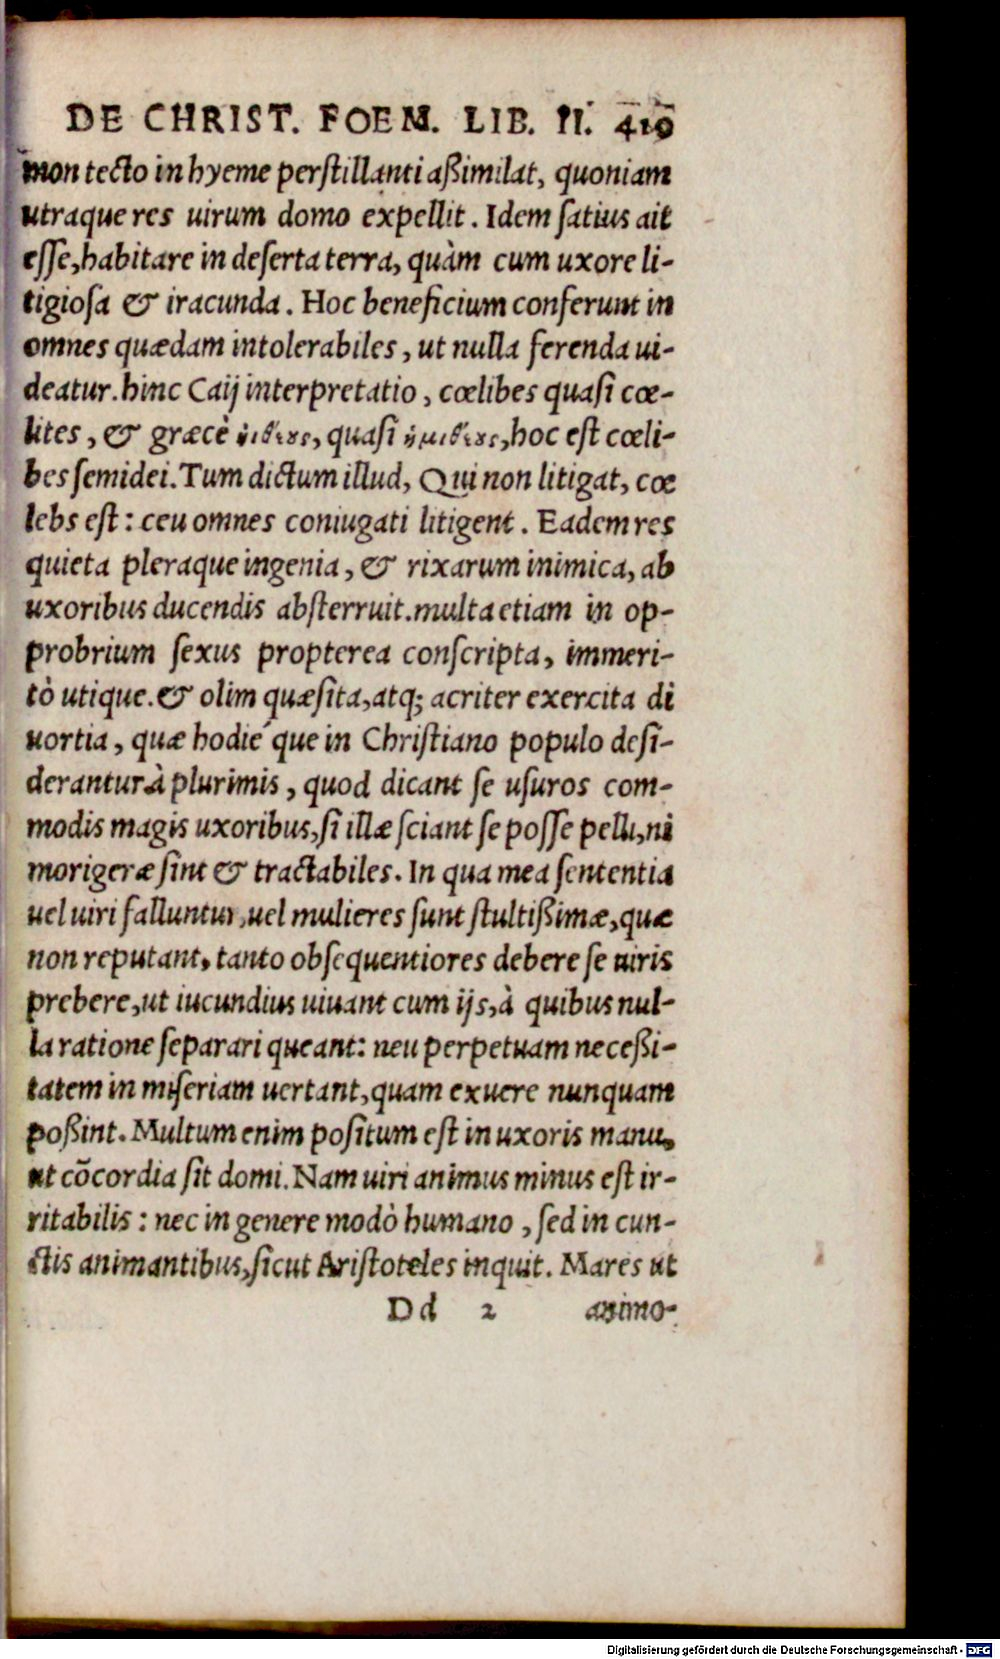 DE CHRIST. FOEM. LIB. II. 419
mon tecto in hyeme perstillanti aßimilat, quoniam
utraque res uirum domo expellit. Idem satius ait
esse, habitare in deserta terra, quàm cum uxore li-
tigiosa & iracunda. Hoc beneficium conferunt in
omnes quædam intolerabiles, ut nulla ferenda ui-
deatur. hinc Caij interpretatio, cœlibes quasi cœ-
lites, & græcè, quasi, hoc est cœli-
bes semidei. Tum dictum illud, Qui non litigat, cœ
lebs est: ceu omnes coniugati litigent. Eadem res
quieta pleraque ingenia, & rixarum inimica, ab
uxoribus ducendis absterruit. multa etiam in op-
probrium sexus propterea conscripta, immeri-
tò utique. & olim quæsita, atq; acriter exercita di
uortia, quæ hodié que in Christiano populo desi-
derantur à plurimis, quod dicant se usuros com-
modis magis uxoribus, si illæ sciant se posse pelli, ni
morigeræ sint & tractabiles. In qua mea sententia
uel uiri falluntur, uel mulieres sunt stultißimæ, quæ
non reputant, tanto obsequentiores debere se uiris
prebere, ut iucundius uiuant cum ijs, à quibus nul-
la ratione separari queant: neu perpetuam neceßi-
tatem in miseriam uertant, quam exuere nunquam
poßint. Multum enim positum est in uxoris manu,
ut cõcordia sit domi. Nam uiri animus minus est ir-
ritabilis: nec in genere modò humano, sed in cun-
ctis animantibus, sicut Aristoteles inquit. Mares ut
Dd 2 animo-
Digitalisierung gefördert durch die Deutsche Forschungsgemeinschaft - DFG